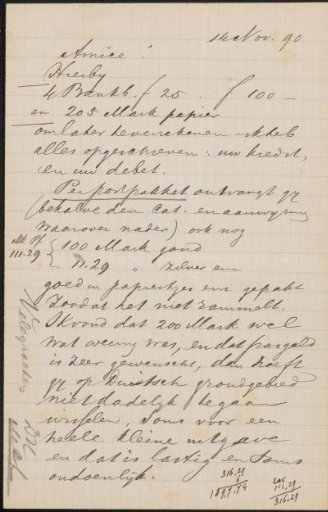 14 Nov. 90
Amice!
Hierby
4 Bankb. f 25 . f 100 –
en 205 Mark papier
om later te verrekenen – ik heb
alles opgeschreven: uw kredit,
en uw debet.
Per postpakket ontvangt gy
(behalve den Cat. en aanwyzing
waarover nader) ook nog
111.29
{ 100 Mark goud
11.29 " zilver en
goed in papiertjes ingepakt
zoodat het niet rammelt.
Ik vond dat 200 Mark wel
wat weinig was, en dat pasgeld
is zeer gewenscht, dan hoeft
gy op Duitsch grondgebied
niet dadelyk te gaan
wisselen, soms voor een
heele kleine uitgave
en dat is lastig en soms
ondoenlyk.
316.29
205
111.29
316.29